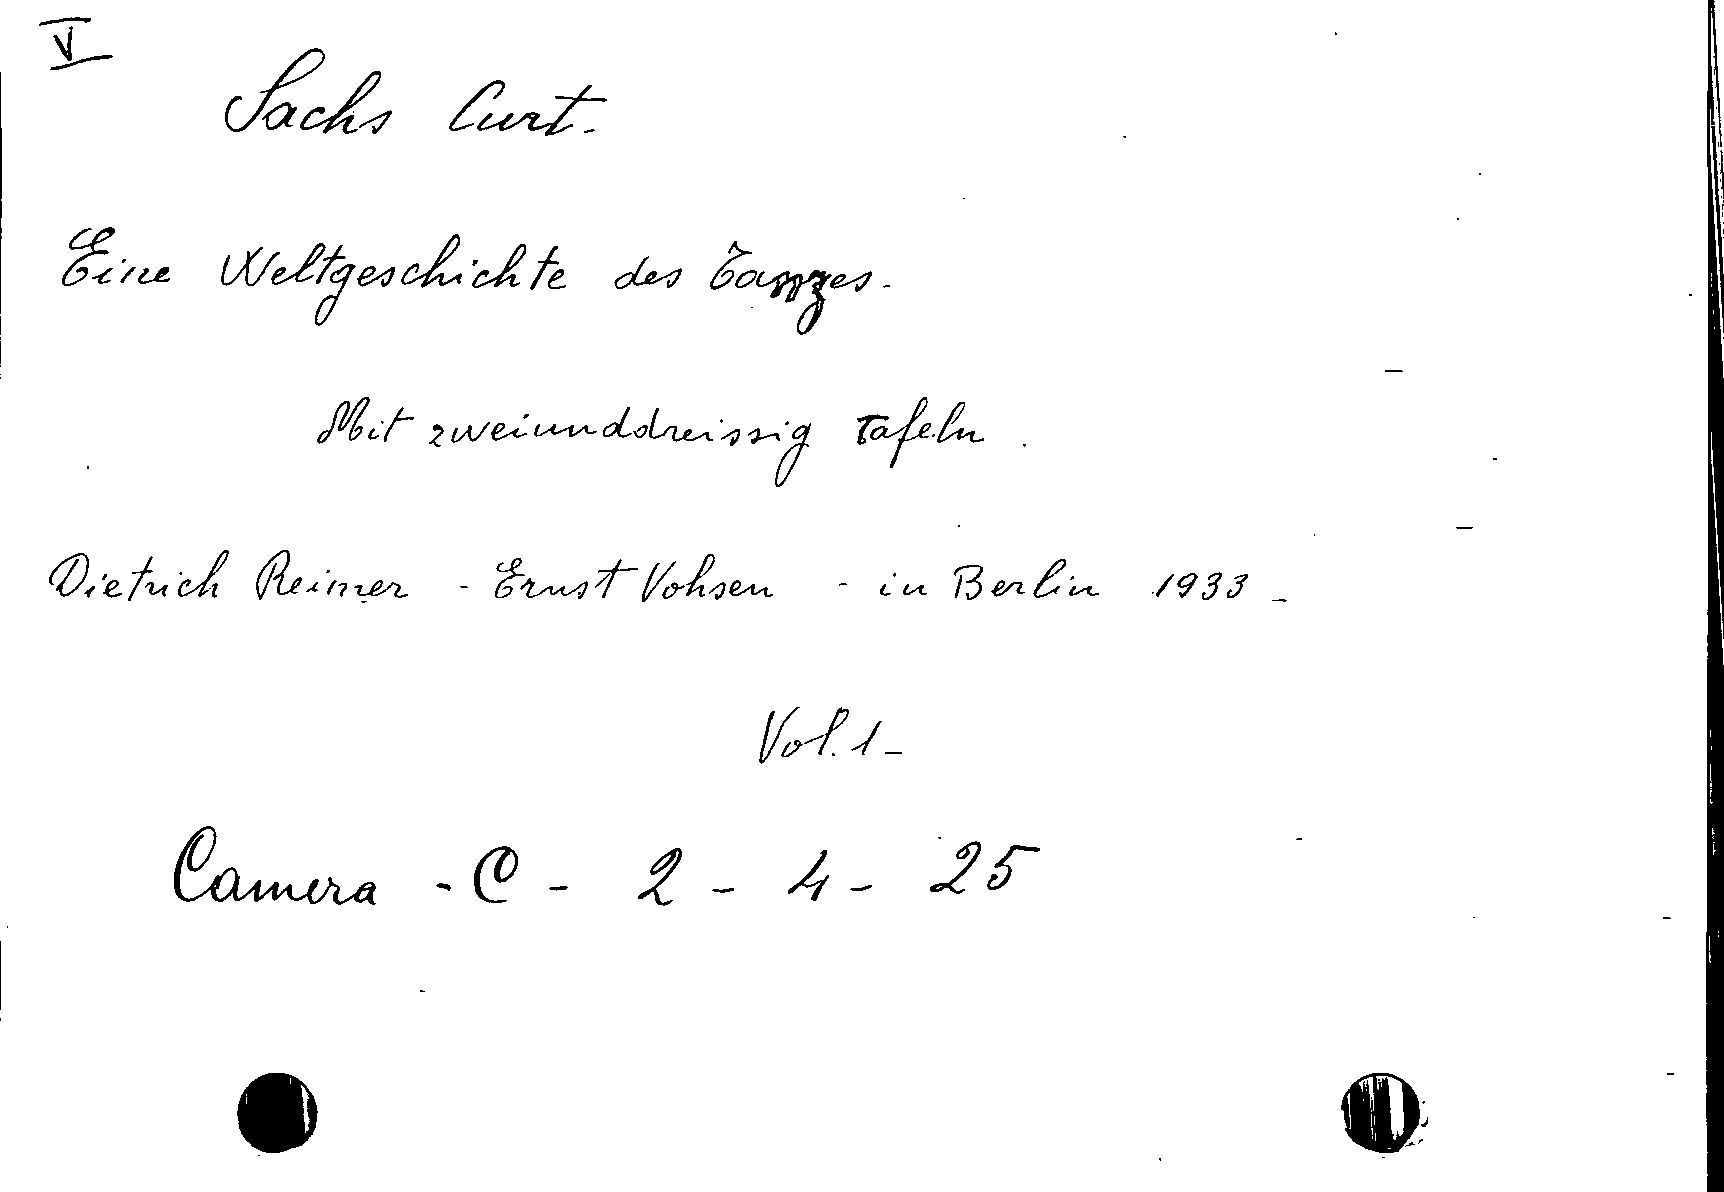 V
Sachs Curt.
Eine Weltgeschichte des Tanzes.
Mit zweiunddreissig Tafeln.
Dietrich Reimer - Ernst Vohsen - in Berlin 1933 -
Vol. 1 -
Camera - C - 2 - 4 - 25